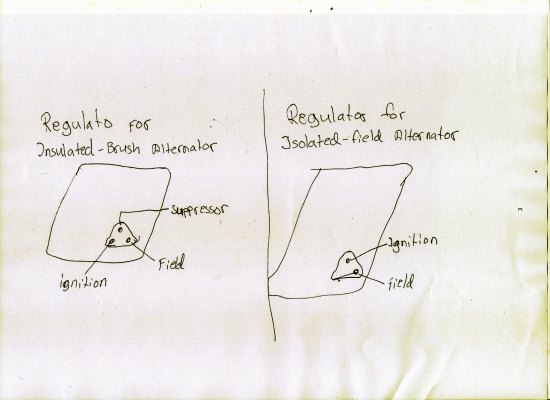 Regulato for
Insulated-Brush Alternator
Suppressor
Field
ignition
Regulator for
Isolated-field Alternator
Ignition
Field